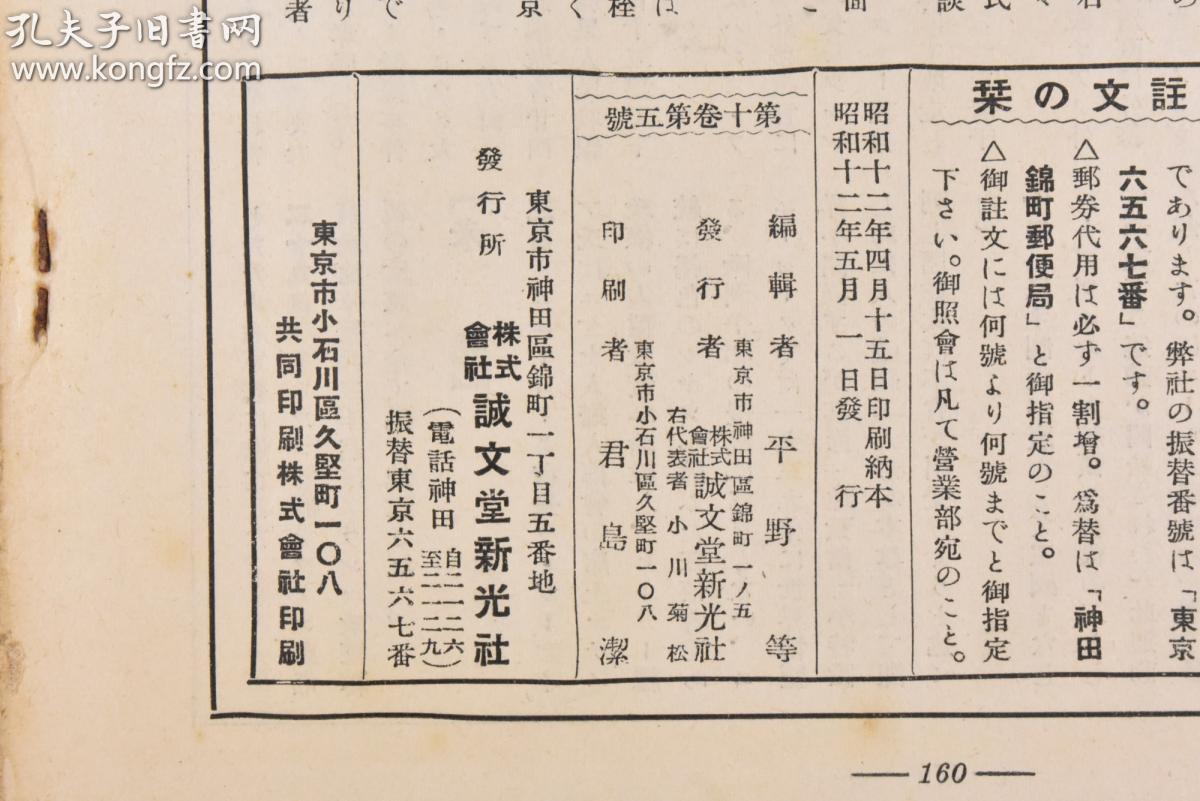 孔夫子旧书网
www.kongfz.com
註文の栞
であります。弊社の振替番號は「東京
六五六七番」です。
△郵券代用は必ず一割増。爲替は「神田
錦町郵便局」と御指定のこと。
△御註文には何號より何號までと御指定
下さい。御照會は凡て營業部宛のこと。
昭和十二年四月十五日印刷納本
昭和十二年五月一日發行
第十卷第五號
編輯者 平野等
東京市神田區錦町一ノ五
發行者 株式會社誠文堂新光社
右代表者 小川菊松
東京市小石川區久堅町一〇八
印刷者 君島潔
東京市神田區錦町一丁目五番地
發行所 株式會社誠文堂新光社
(電話神田自二一二六至二一二九)
振替東京六五六七番
東京市小石川區久堅町一〇八
共同印刷株式會社印刷
160